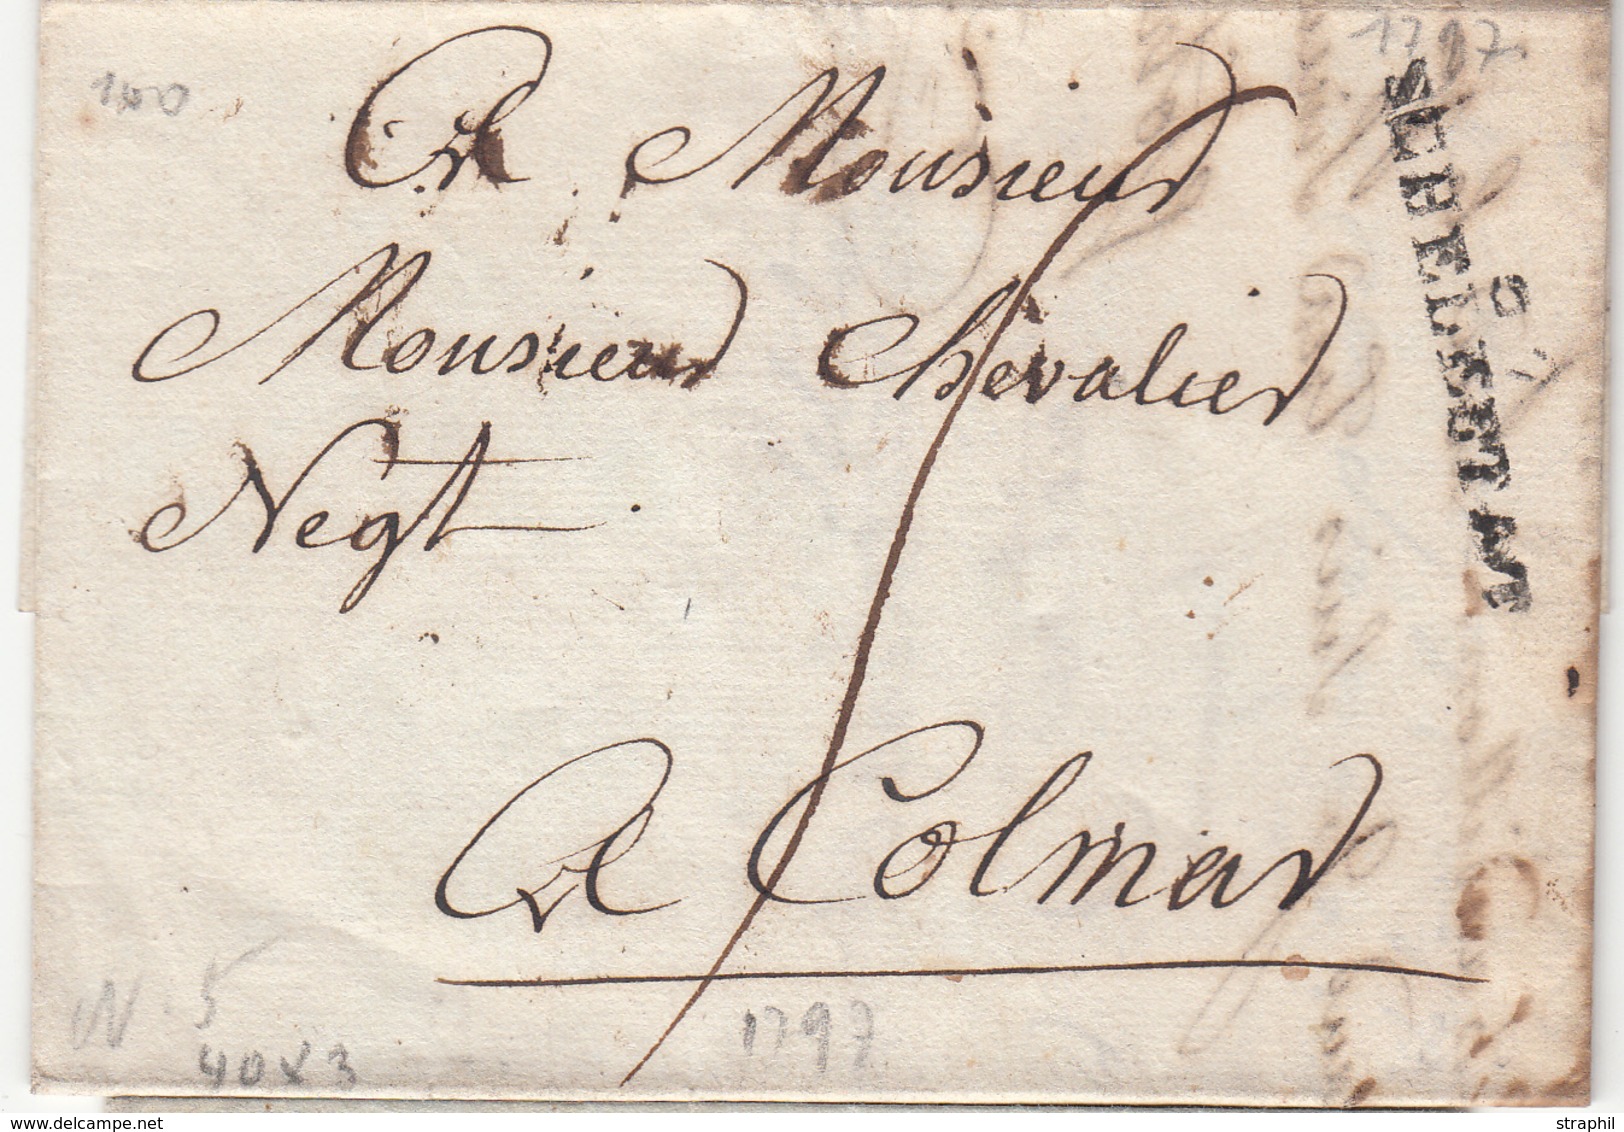 1797
100
A Monsieur
Monsieur Chevalier
Negt.
A Colmar
67
SCHELESTAT
N. 5
40 x 3
1797
straphil
delcampe.net